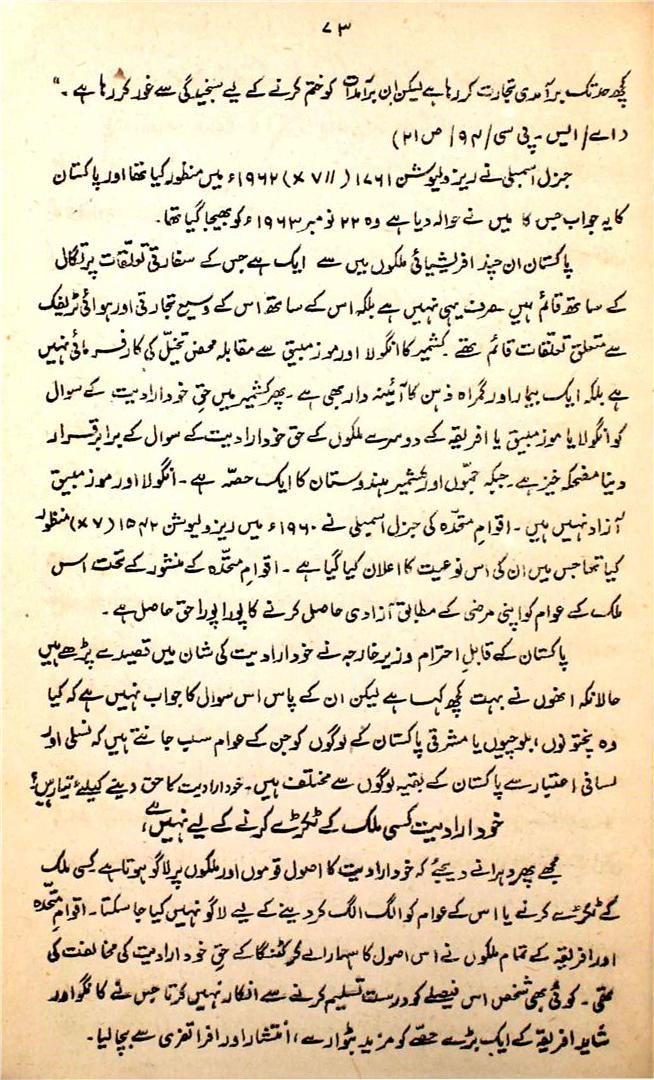 ۷۳
کچھ حد تک برآمدی تجارت کر رہا ہے لیکن ان برآمدات کو ختم کرنے کے لیے سنجیدگی سے غور کر رہا ہے۔"
(اے/ایس۔پی سی/۹۴/ ص ۲۱)
جنرل اسمبلی نے ریزولیوشن ۱۷۶۱ (XVII) ۱۹۶۲ء میں منظور کیا تھا اور پاکستان
کا یہ جواب جس کا میں نے حوالہ دیا ہے وہ ۲۲ نومبر ۱۹۶۳ء کو بھیجا گیا تھا۔
پاکستان ان چند افریشیائی ملکوں میں سے ایک ہے جس کے سفارتی تعلّقات پرتگال
کے ساتھ قائم ہیں۔ صرف یہی نہیں ہے بلکہ اس کے ساتھ اس کے وسیع تجارتی اور ہوائی ٹریفک
سے متعلق تعلقات قائم تھے۔ کشمیر کا انگولا اور موزمبیق سے مقابلہ محض تخیّل کی کارفرمائی نہیں
ہے بلکہ ایک بیمار اور گمراہ ذہن کا آئینہ دار بھی ہے۔ پھر کشمیر میں حقِ خود ارادیت کے سوال
کو انگولا یا موزمبیق یا افریقہ کے دوسرے ملکوں کے حق خود ارادیت کے سوال کے برابر قرار
دینا مضحکہ خیز ہے۔ جبکہ جمّوں اور کشمیر ہندوستان کا ایک حصّہ ہے۔ انگولا اور موزمبیق
آزاد نہیں ہیں۔ اقوامِ متحّدہ کی جنرل اسمبلی نے ۱۹۶۰ء میں ریزولیوشن ۱۵۴۲ (XV) منظور
کیا تھا جس میں ان کی اس نوعیت کا اعلان کیا گیا ہے۔ اقوام متحّدہ کے منشور کے تحت اس
ملک کے عوام کو اپنی مرضی کے مطابق آزادی حاصل کرنے کا پورا پورا حق حاصل ہے۔
پاکستان کے قابلِ احترام وزیر خارجہ نے خود ارادیت کی شان میں قصیدے پڑھے ہیں
حالانکہ انھوں نے بہت کچھ کہا ہے لیکن ان کے پاس اس سوال کا جواب نہیں ہے کہ کیا
وہ پختونوں، بلوچیوں یا مشرقی پاکستان کے لوگوں کو جن کے عوام سب جانتے ہیں کہ نسلی اور
لسانی اعتبار سے پاکستان کے بقیہ لوگوں سے مختلف ہیں۔ خود ارادیت کا حق دینے کیلئے تیار ہیں؟
خود ارادیت کسی ملک کے ٹکڑے کرنے کے لیے نہیں ہے،
مجھے پھر دہرانے دیجیے کہ خود ارادیت کا اصول قوموں اور ملکوں پر لاگو ہوتا ہے کسی ملک
کے ٹکڑے کرنے یا اس کے عوام کو الگ الگ کر دینے کے لیے لاگو نہیں کیا جا سکتا۔ اقوامِ متحّدہ
اور افریقہ کے تمام ملکوں نے اس اصول کا سہارا لے کر کٹنگا کے حق خود ارادیت کی مخالفت کی
تھی۔ کوئی بھی شخص اس فیصلے کو درست تسلیم کرنے سے انکار نہیں کرتا جس نے کانگو اور
شاید افریقہ کے ایک بڑے حصّے کو مزید بٹوارے، انتشار اور افراتفری سے بچا لیا۔